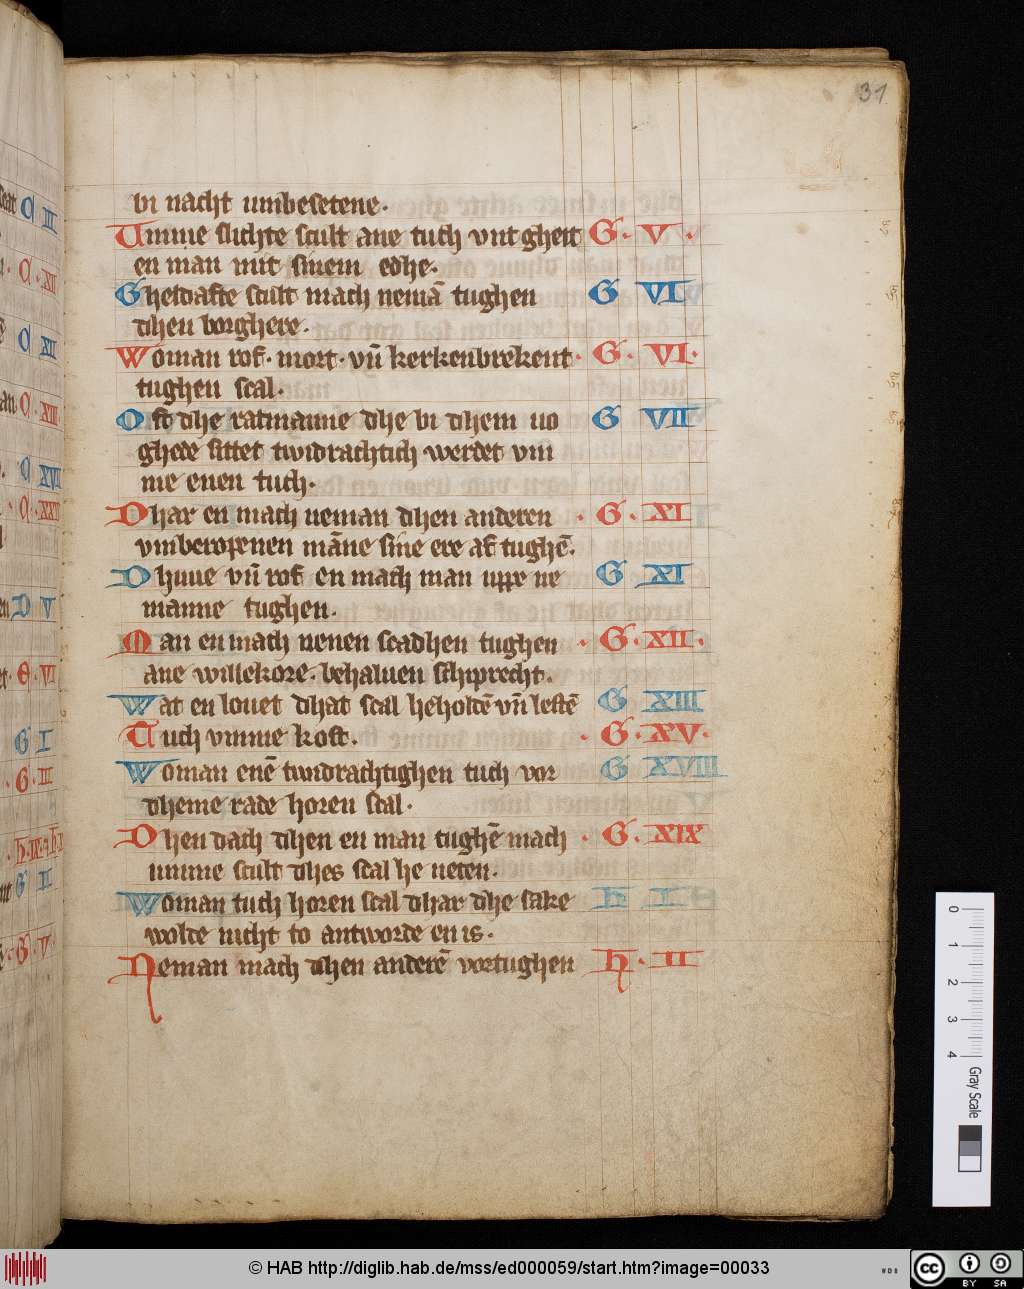 31
bi nacht umbesetene.
Umme slichte scult ane tuch vntgheit G. V.
en man mit sinem edhe.
Gheldafte scult mach nemā tughen G VI
dhen borghere.
Woman rof. mort. vn̄ kerkenbrekent. G. VI.
tughen scal.
Oft dhe ratmanne dhe bi dhem uo G VII
ghede sittet twidrachtich werdet vm
me enen tuch.
Dhar en mach neman dhen anderen . G. XI
vmberopenen māne sine ere af tughē.
Dhuue vn̄ rof en mach man uppe ne G XI
manne tughen.
Man en mach nenen scadhen tughen . G. XII.
ane willekore. behaluen schiprecht.
Wat en louet dhat scal heholdē vn̄ lestē G XIII
Tuch vmme kost. . G. XV.
Woman enē twidrachtighen tuch vor G XVIII
dheme rade horen scal.
Dhen dach dhen en man tughē mach . G. XIX
umme scult dhes scal he neten.
Woman tuch horen scal dhar dhe sake h I
wolde nicht to antworde en is.
Neman mach dhen anderē vortughen h. II
C III
C. XI
C XI
C. XIII
C XVI
C. XXI
D V
E. VI
G I
G. II
G II
G. V.
0 1 2 3 4
Gray Scale
© HAB http://diglib.hab.de/mss/ed000059/start.htm?image=00033
WDB
cc BY SA